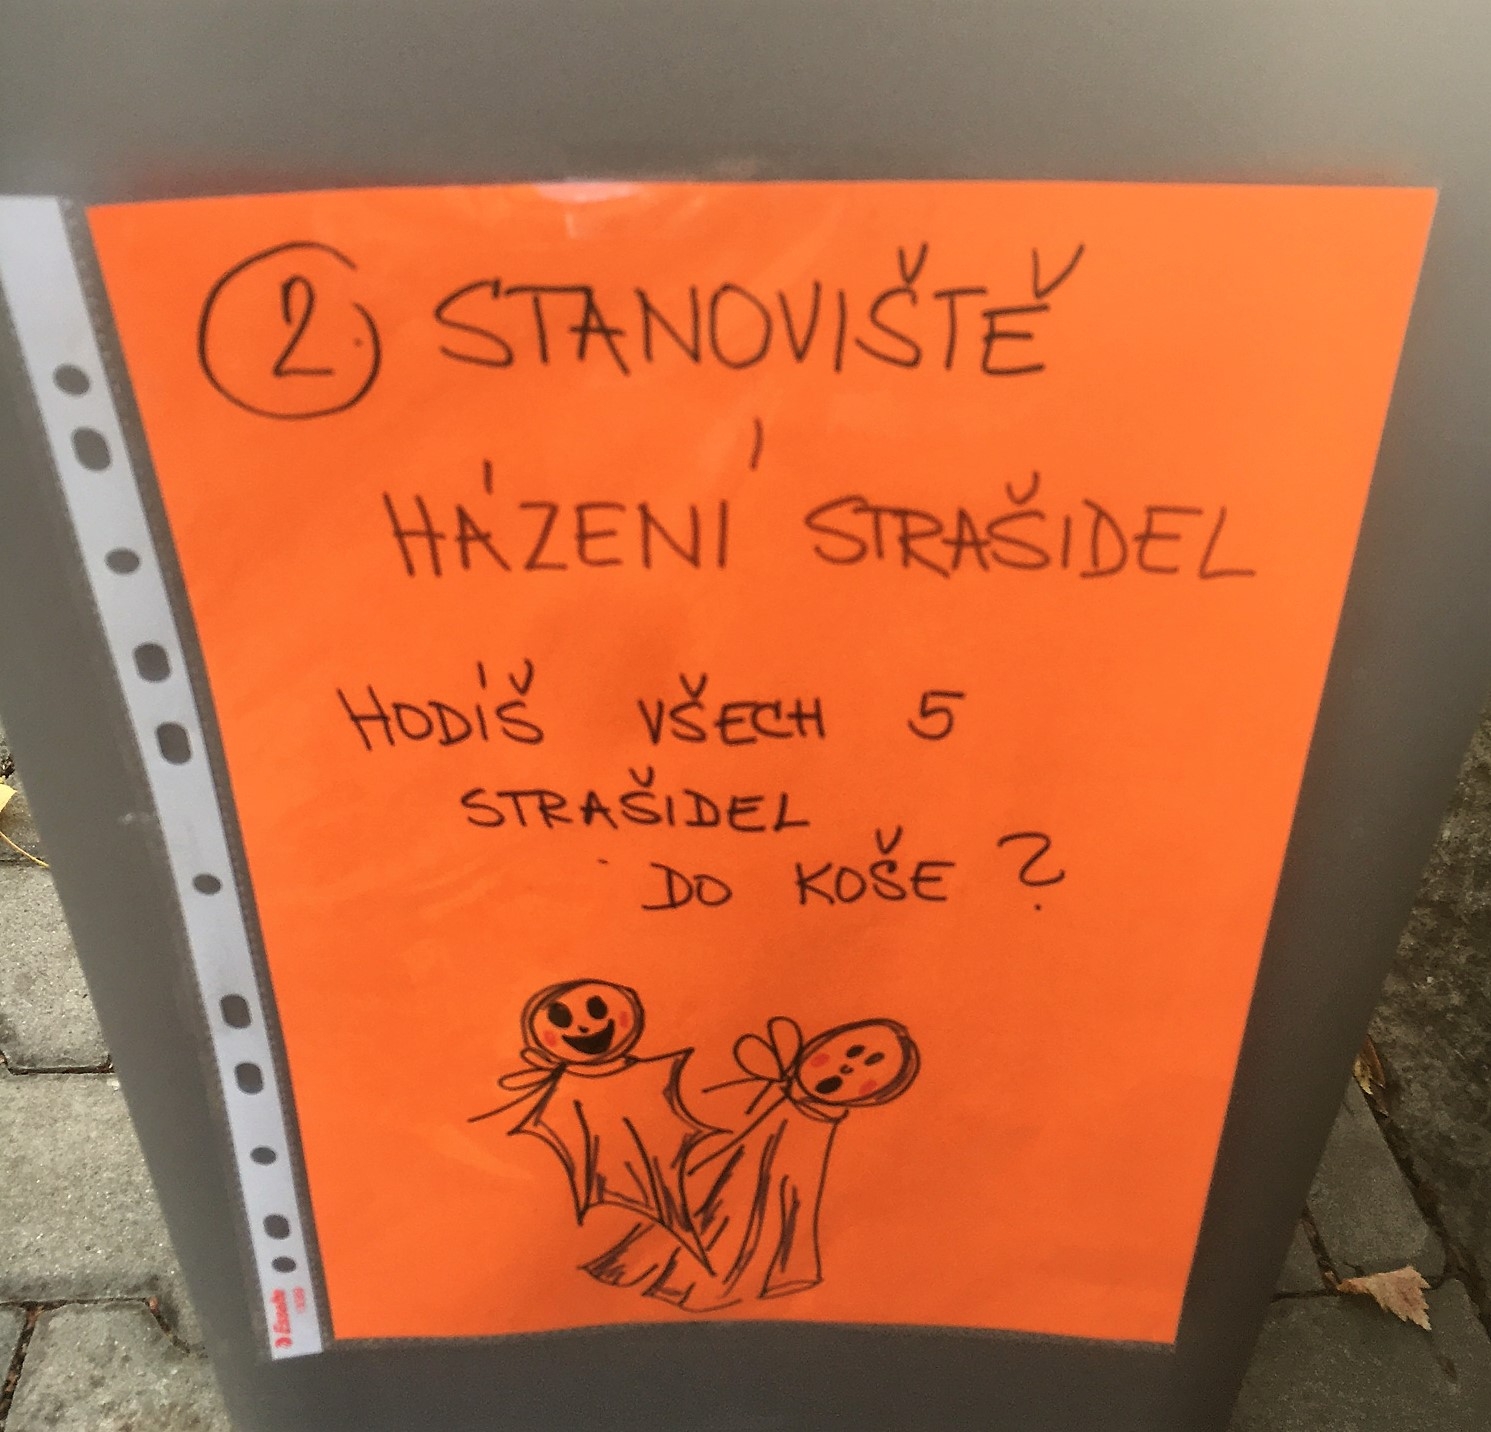 2. STANOVIŠTĚ
HÁZENÍ STRAŠIDEL
HODÍŠ VŠECH 5
STRAŠIDEL
DO KOŠE ?
Esselte